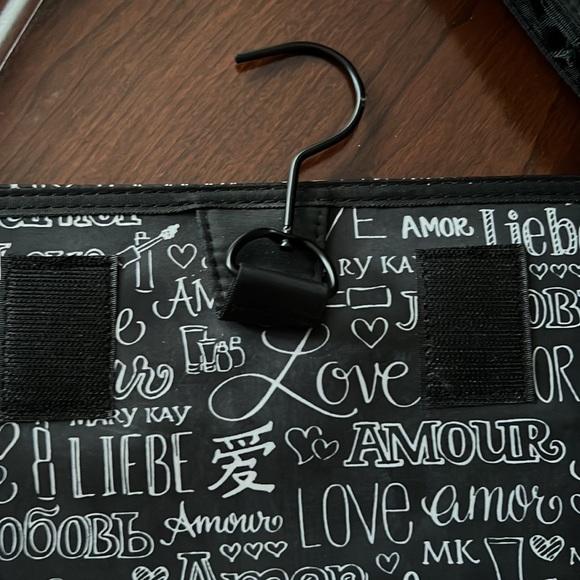 AMOR Liebe
RY KA
Love
MARY KAY
LIEBE 爱 AMOUR
LOVE amor
любовь Amour
MK
Amor